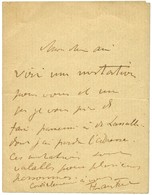 Mon cher ami
voici une invitation
pour vous et un
que je vous prie de
faire parvenir à Lassalle
dont j'ai perdu l'adresse
Ces invitations sont
valables pour plusieurs
personnes.